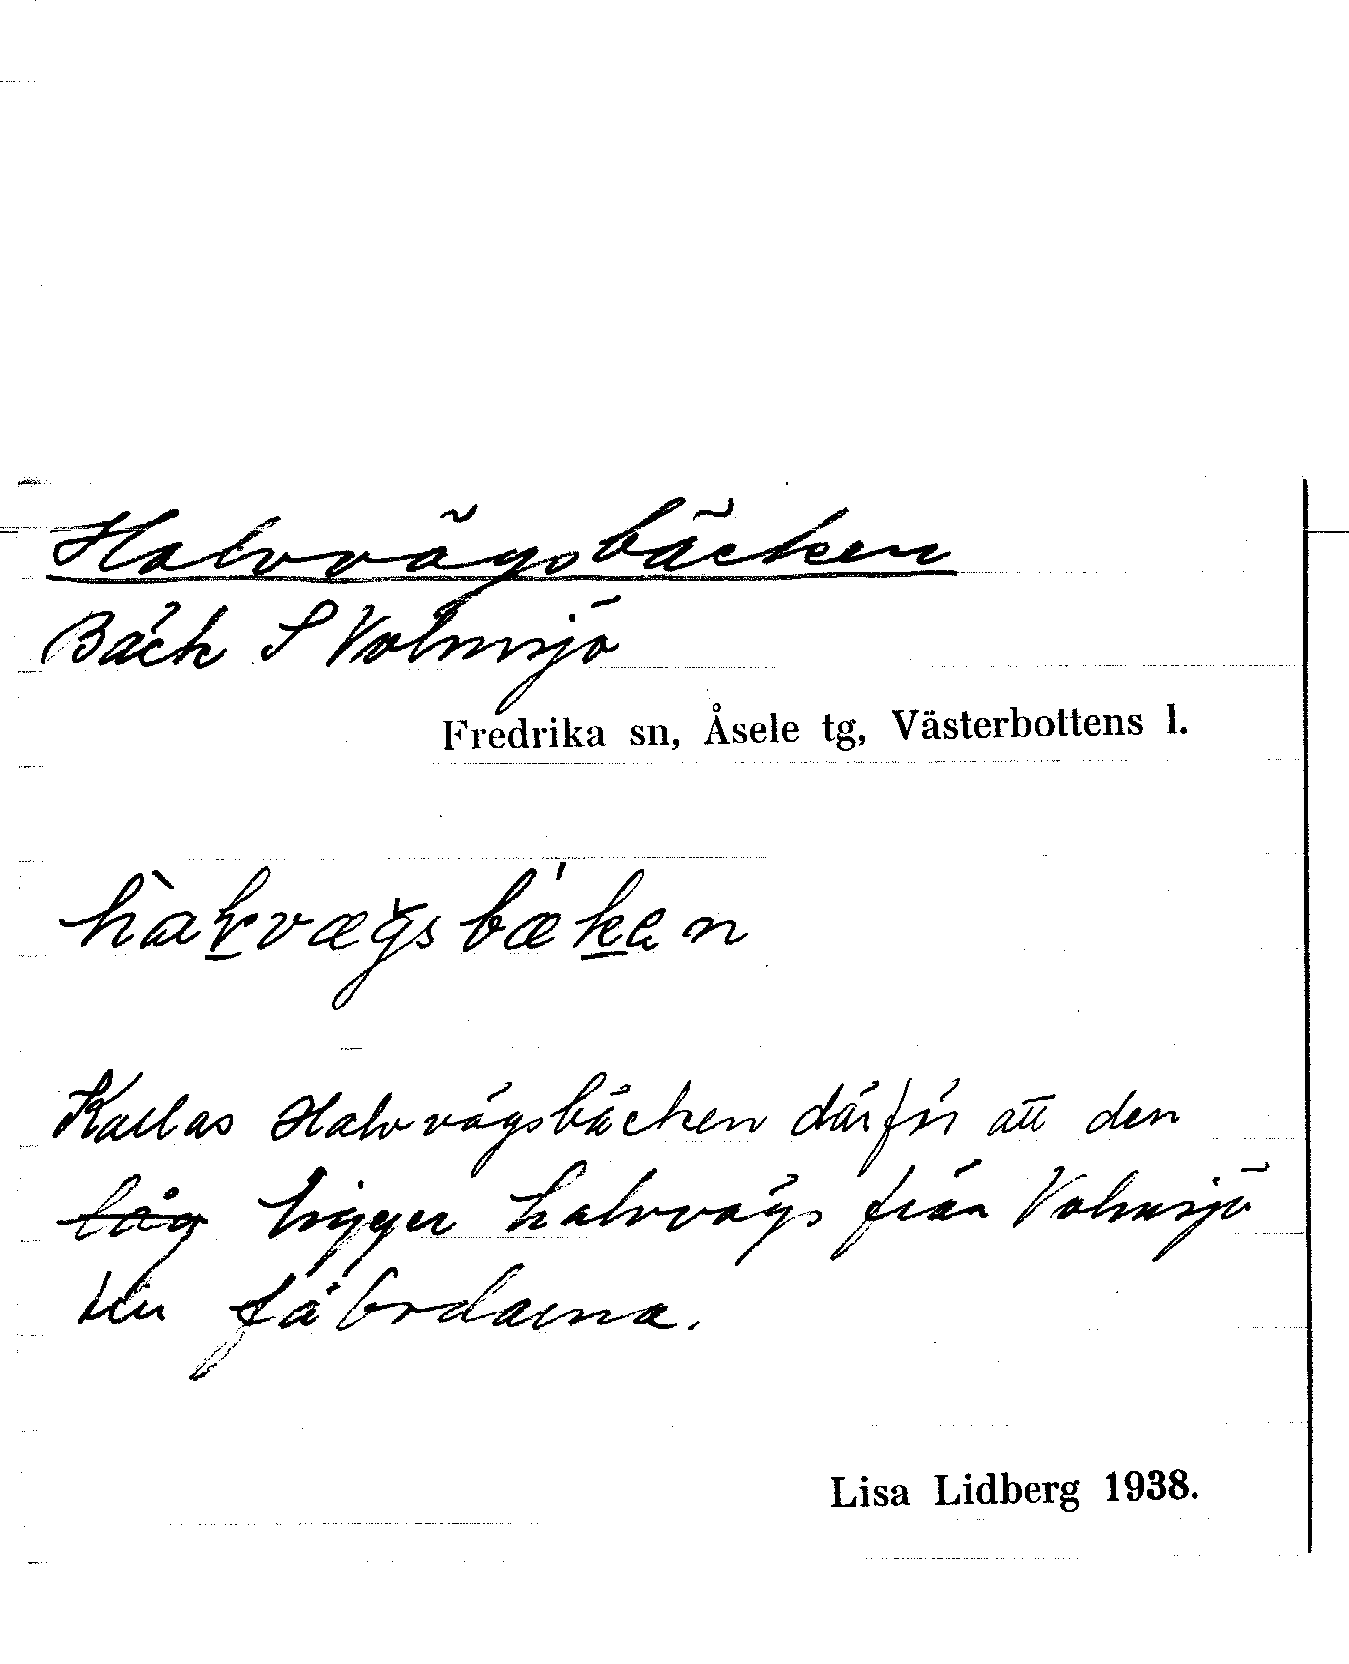 Halvvägsbäcken
Bäck S Volmsjö
Fredrika sn, Åsele tg, Västerbottens l.
Kallas Halvvägsbäcken därför att den
låg ligger halvvägs från Volmsjö
till fäbodarna.
Lisa Lidberg 1938.